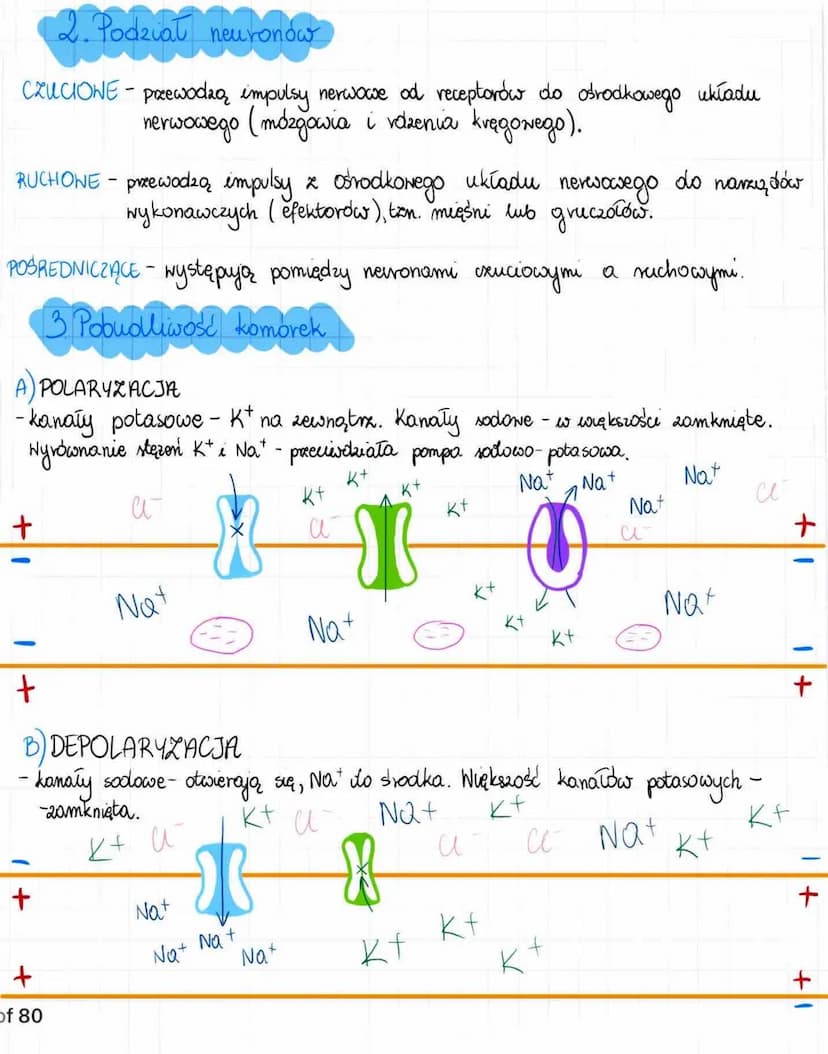 2. Podział neuronów
CZUCIOWE - przewodzą impulsy nerwowe od receptorów do ośrodkowego układu
nerwowego (mózgowia i rdzenia kręgowego).
RUCHOWE - przewodzą impulsy z ośrodkowego układu nerwowego do narządów
wykonawczych (efektorów), tzn. mięśni lub gruczołów.
POŚREDNICZĄCE - występują pomiędzy neuronami czuciowymi a ruchowymi.
3. Pobudliwość komórek
A) POLARYZACJA
- kanały potasowe - K⁺ na zewnątrz. Kanały sodowe - w większości zamknięte.
Wyrównanie stężeń K⁺ i Na⁺ - przeciwdziała pompa sodowo-potasowa.
K⁺ K⁺ Na⁺ Na⁺ Na⁺ Cl⁻
Cl⁻ K⁺ K⁺ Na⁺
+ Cl⁻ Cl⁻ +
- K⁺ -
Na⁺ Na⁺ K⁺ Na⁺
- K⁺ -
+ +
B) DEPOLARYZACJA
- kanały sodowe - otwierają się, Na⁺ do środka. Większość kanałów potasowych -
- zamknięta.
K⁺ Cl⁻ Na⁺ K⁺ K⁺
K⁺ Cl⁻ Cl⁻ Cl⁻ Na⁺ K⁺
- × -
+ +
Na⁺ K⁺
Na⁺ Na⁺ Na⁺ K⁺ K⁺
+ +
-
of 80